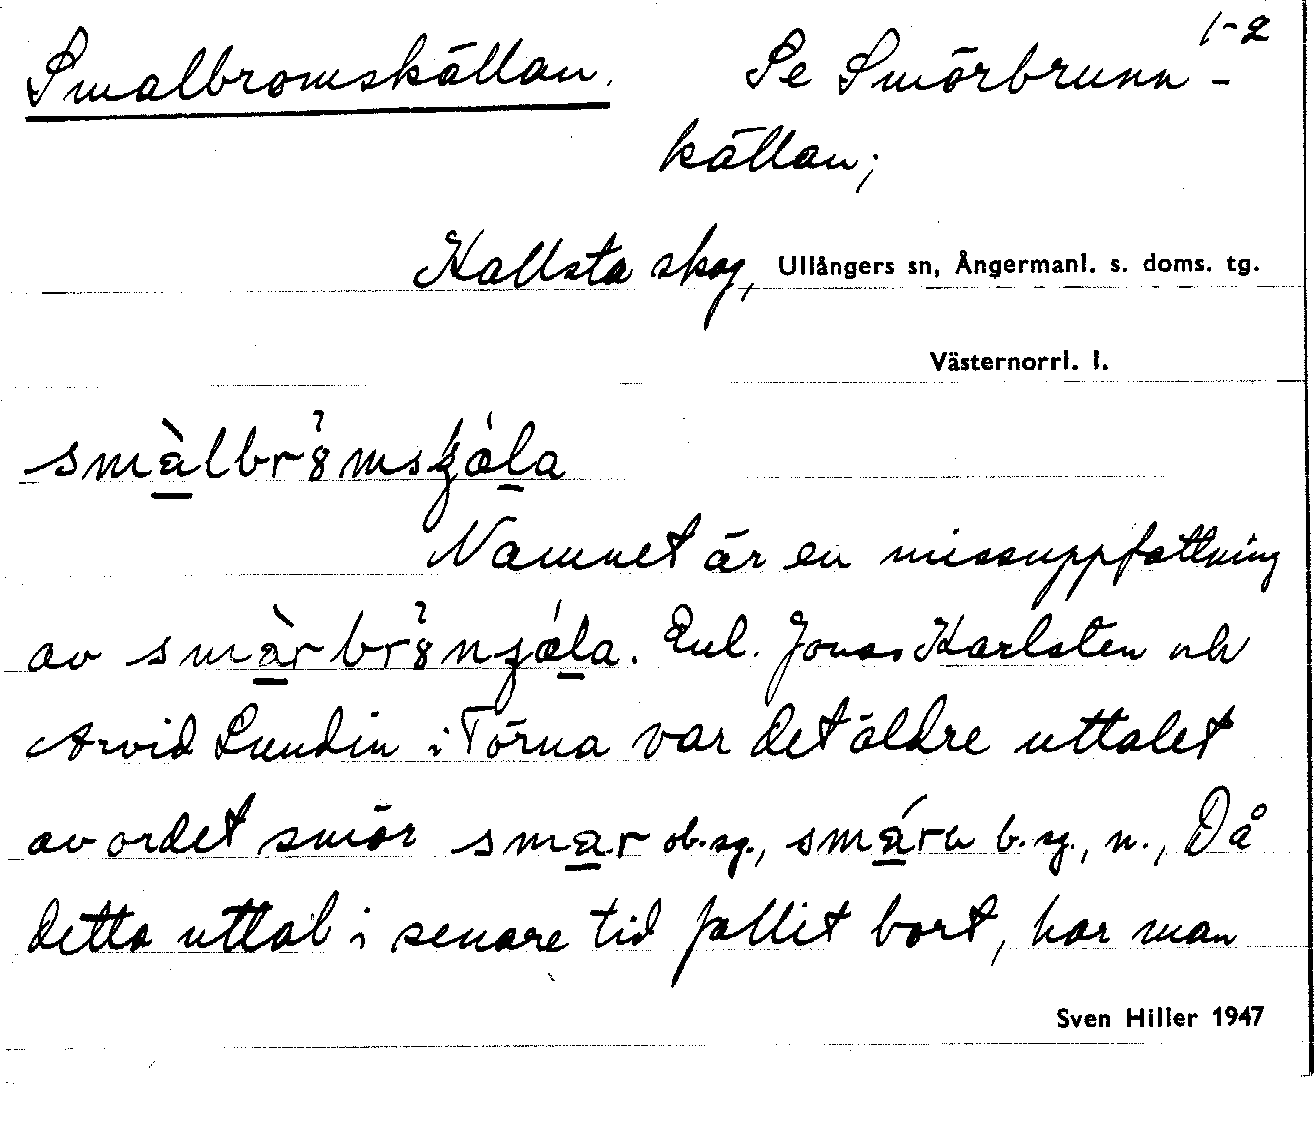 1-2
Smalbromskällan. Se Smörbrunn-
källan;
Hallsta skog, Ullångers sn, Ångermanl. s. doms. tg.
Västernorrl. l.
Namnet är en missuppfattning
av Enl. Jonas Karlsten och
Arvid Lundin i Törna var det äldre uttalet
av ordet smör smar ob. sg., b. sg., n., Då
detta uttal i senare tid fallit bort, har man
Sven Hiller 1947